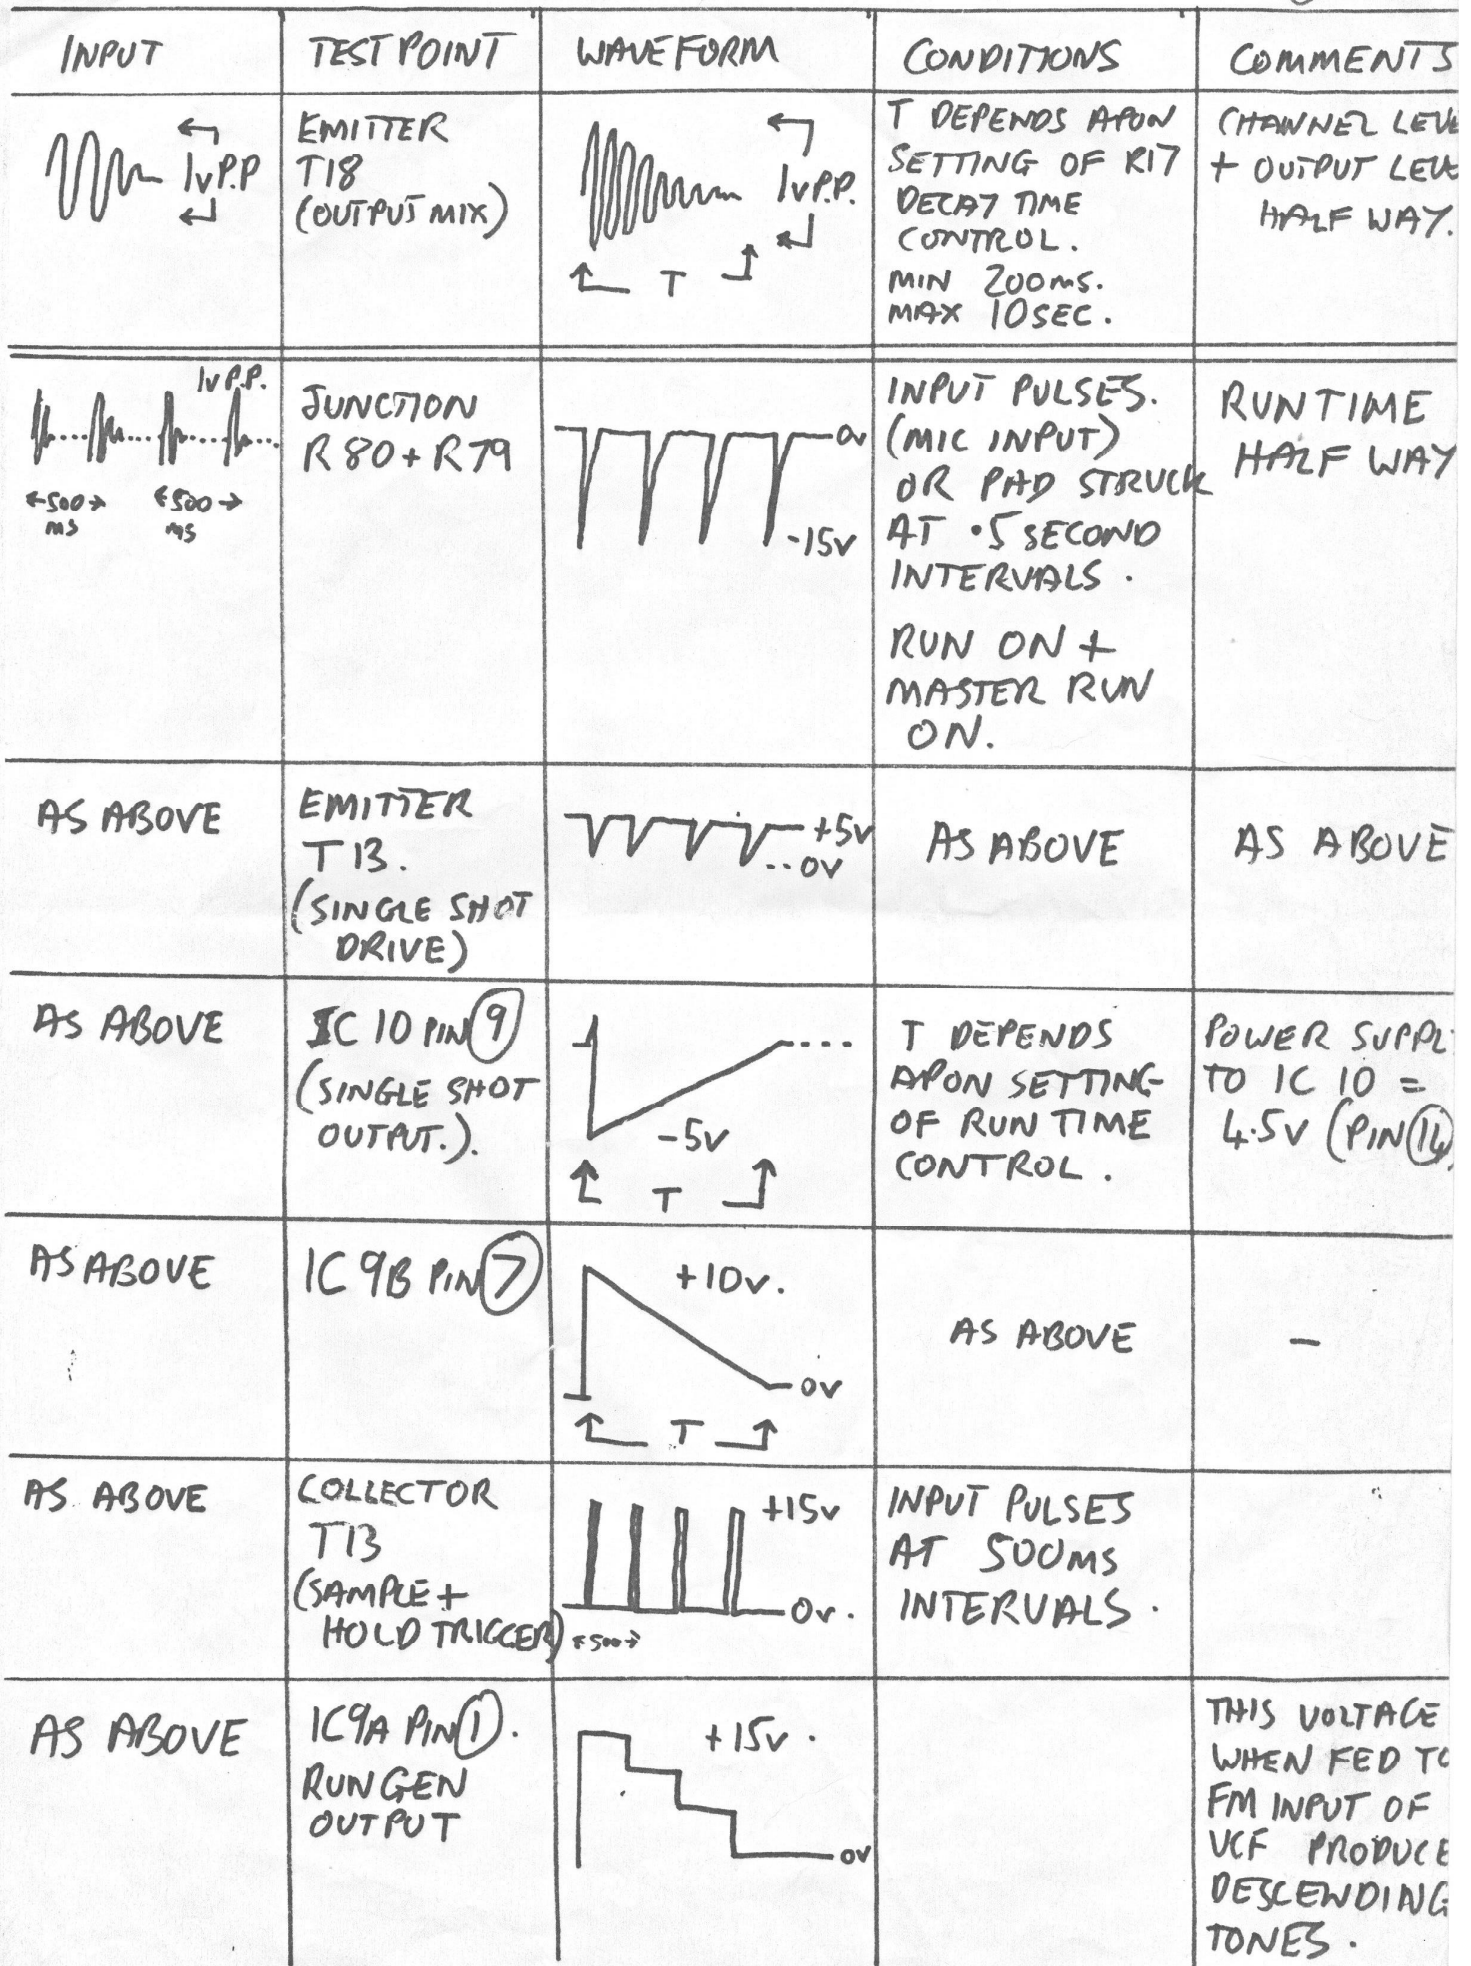 INPUT
TEST POINT
WAVEFORM
CONDITIONS
COMMENTS
1v P.P
EMITTER
T18
(OUTPUT MIX)
1v P.P.
T
T DEPENDS APON
SETTING OF R17
DECAY TIME
CONTROL.
MIN 200ms.
MAX 10SEC.
CHANNEL LEVE
+ OUTPUT LEVE
HALF WAY.
1v P.P.
500
ms
500
ms
JUNCTION
R80+R79
0v
-15v
INPUT PULSES.
(MIC INPUT)
OR PAD STRUCK
AT .5 SECOND
INTERVALS.
RUN ON +
MASTER RUN
ON.
RUNTIME
HALF WAY
AS ABOVE
EMITTER
T13.
(SINGLE SHOT
DRIVE)
+5v
0v
AS ABOVE
AS ABOVE
AS ABOVE
IC 10 PIN 9
(SINGLE SHOT
OUTPUT.).
-5v
T
T DEPENDS
APON SETTING
OF RUN TIME
CONTROL.
POWER SUPPL
TO IC 10 =
4.5v (PIN 14)
AS ABOVE
IC 9B PIN 7
+10v.
0v
T
AS ABOVE
-
AS ABOVE
COLLECTOR
T13
(SAMPLE +
HOLD TRIGGER)
+15v
0v.
500
INPUT PULSES
AT 500MS
INTERVALS.
AS ABOVE
IC9A PIN 1.
RUN GEN
OUTPUT
+15v.
0v
THIS VOLTAGE
WHEN FED TO
FM INPUT OF
VCF PRODUCE
DESCENDING
TONES.